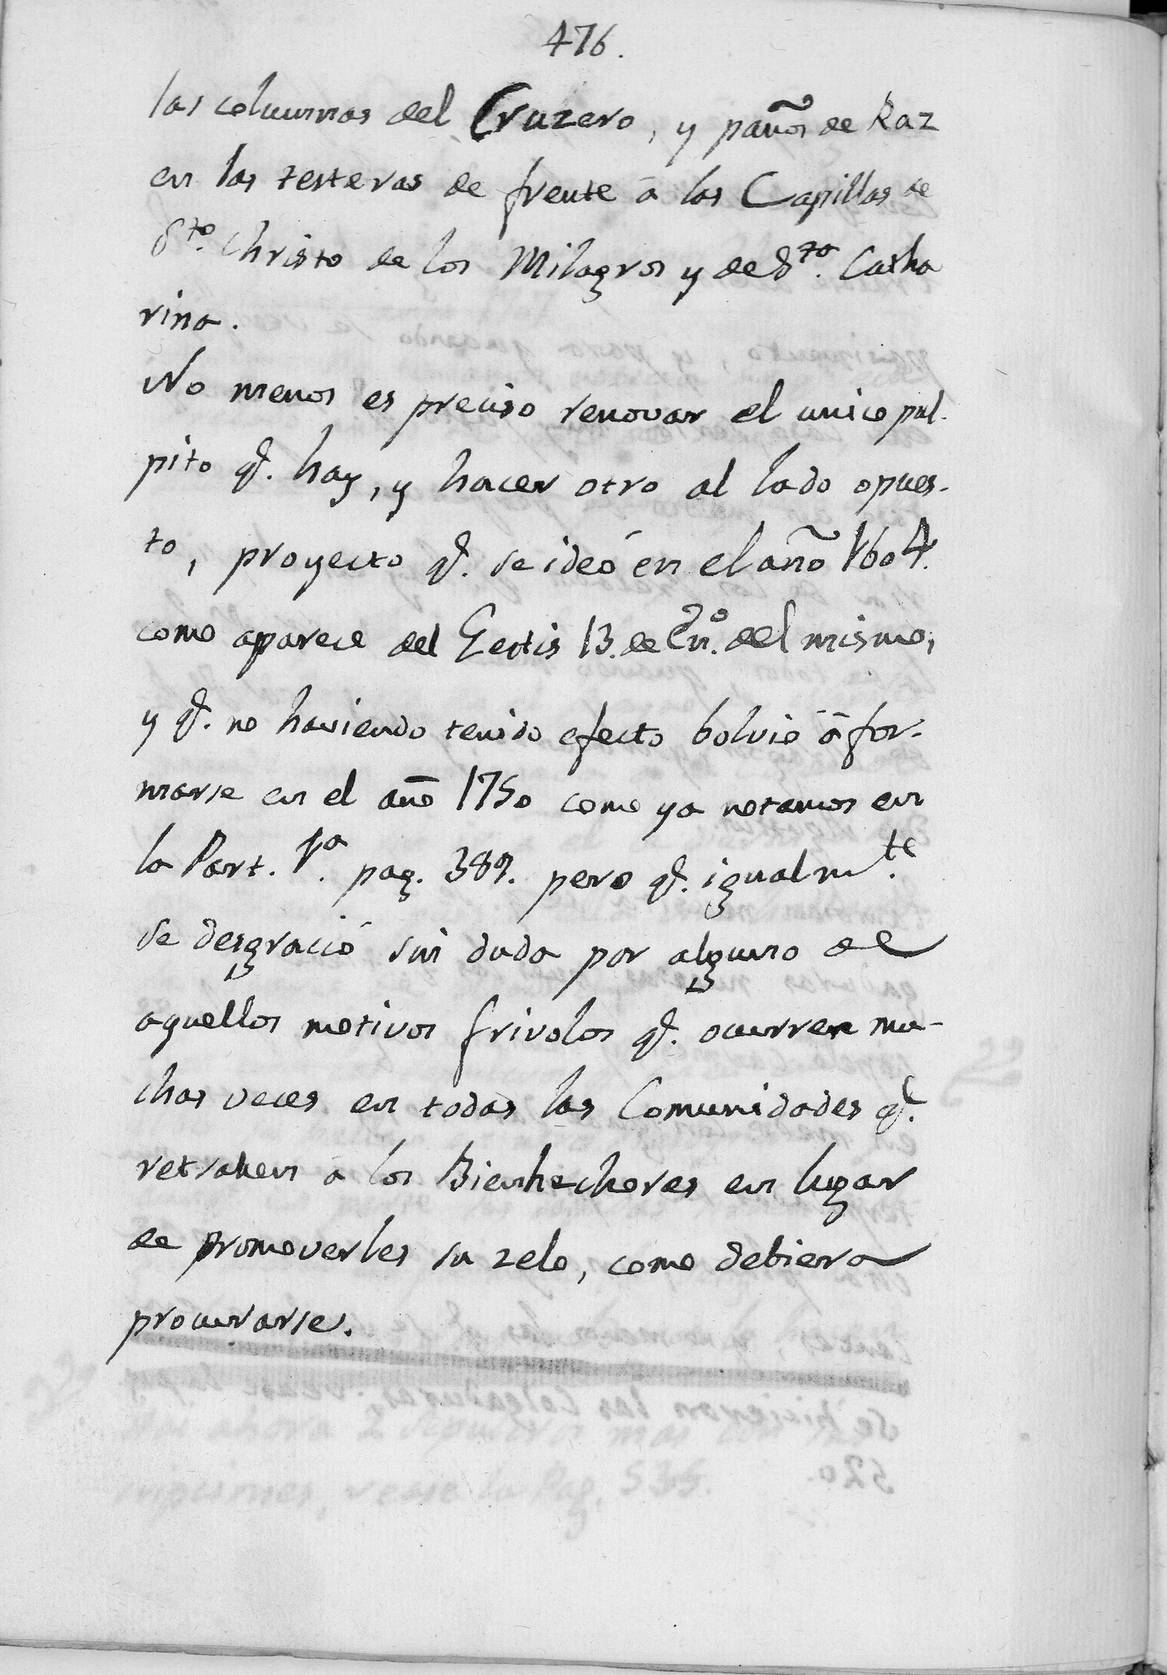 476.
las columnas del Cruzero, y paños de Raz
en las testeras de frente â las Capillas de
Sto. Christo de los Milagros y de Sta. Catha
rina.
No menos es preciso renovar el unico pul-
pito q̃. hay, y hacer otro al lado opues-
to, proyecto q̃. se ideó en el año 1604.
como aparece del Gestis 13. de Enº. del mismo,
y q̃. no haviendo tenido efecto bolvió â for-
marse en el año 1750 como ya notamos en
la Part. 1ª. pag. 389. pero q̃. igualmte.
se desgració sin duda por alguno de
aquellos motivos frivolos q̃. ocurren mu-
chas veces en todas las Comunidades q̃.
retrahen â los Bienhechores en lugar
de promoverles su zelo, como debiera
procurarse.